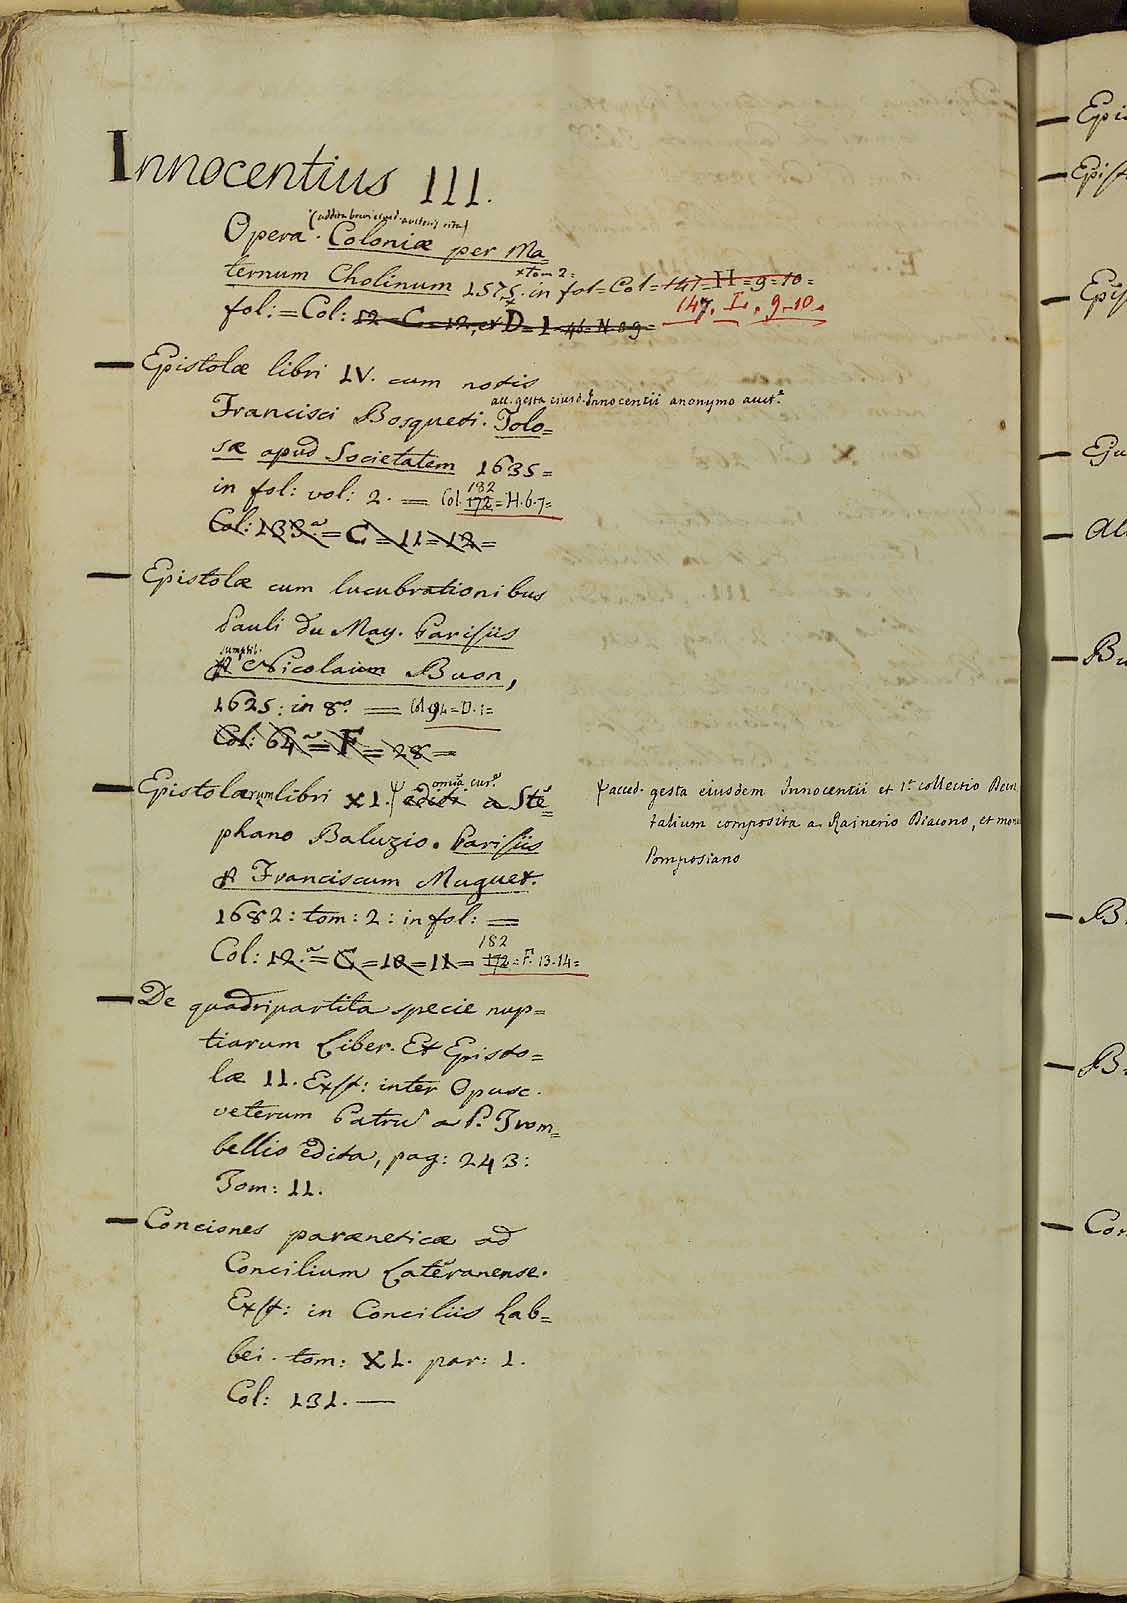 Innocentius III.
(addita brevi ejusd. auctoris vita)
Opera. Coloniæ per Ma=
ternum Cholinum 1575. in fol= Col= 147=H=9=10=
× tom 2=
147. L. 9-10.
fol:= Col: 12=C=12, et D=1
— Epistolæ libri IV. cum notis
acc. gesta eiusd. Innocentii anonymo auct.e
Francisci Bosqueti. Tolo=
sæ apud Societatem 1635=
in fol: vol: 2. = Col. 172=H.6.7=
182
Col: 133.a= C=11=12=
— Epistolæ cum lucubrationibus
Pauli du May. Parisiis
sumptib.
Nicolaum Buon,
1625: in 8.o = Col 94=D.1=
Col: 64.a= F=28=
— Epistolarum libri XI. Ψ edita a Ste=
omnia cur.e
phano Baluzio. Parisiis
Franciscum Muguet.
1682: tom: 2: in fol: =
Col: 12.a= C=10=11= 172=F.13.14=
182
Ψ acced. gesta eiusdem Innocentii et 1.a collectio Decre
talium composita a Rainerio Diacono, et mona
Pomposiano
— De quadripartita specie nup=
tiarum Liber. Et Episto=
læ II. Exst: inter Opusc.
veterum Patrū a P. Trom=
bellio edita, pag: 243:
Tom: II.
— Conciones paræneticæ ad
Concilium Lateranense.
Exst: in Conciliis Lab=
bei. tom: XI. par: 1.
Col: 131. —
— Epi
— Epist
— Epist
— Eju
— Al
— Bu
— B
— B
— Con